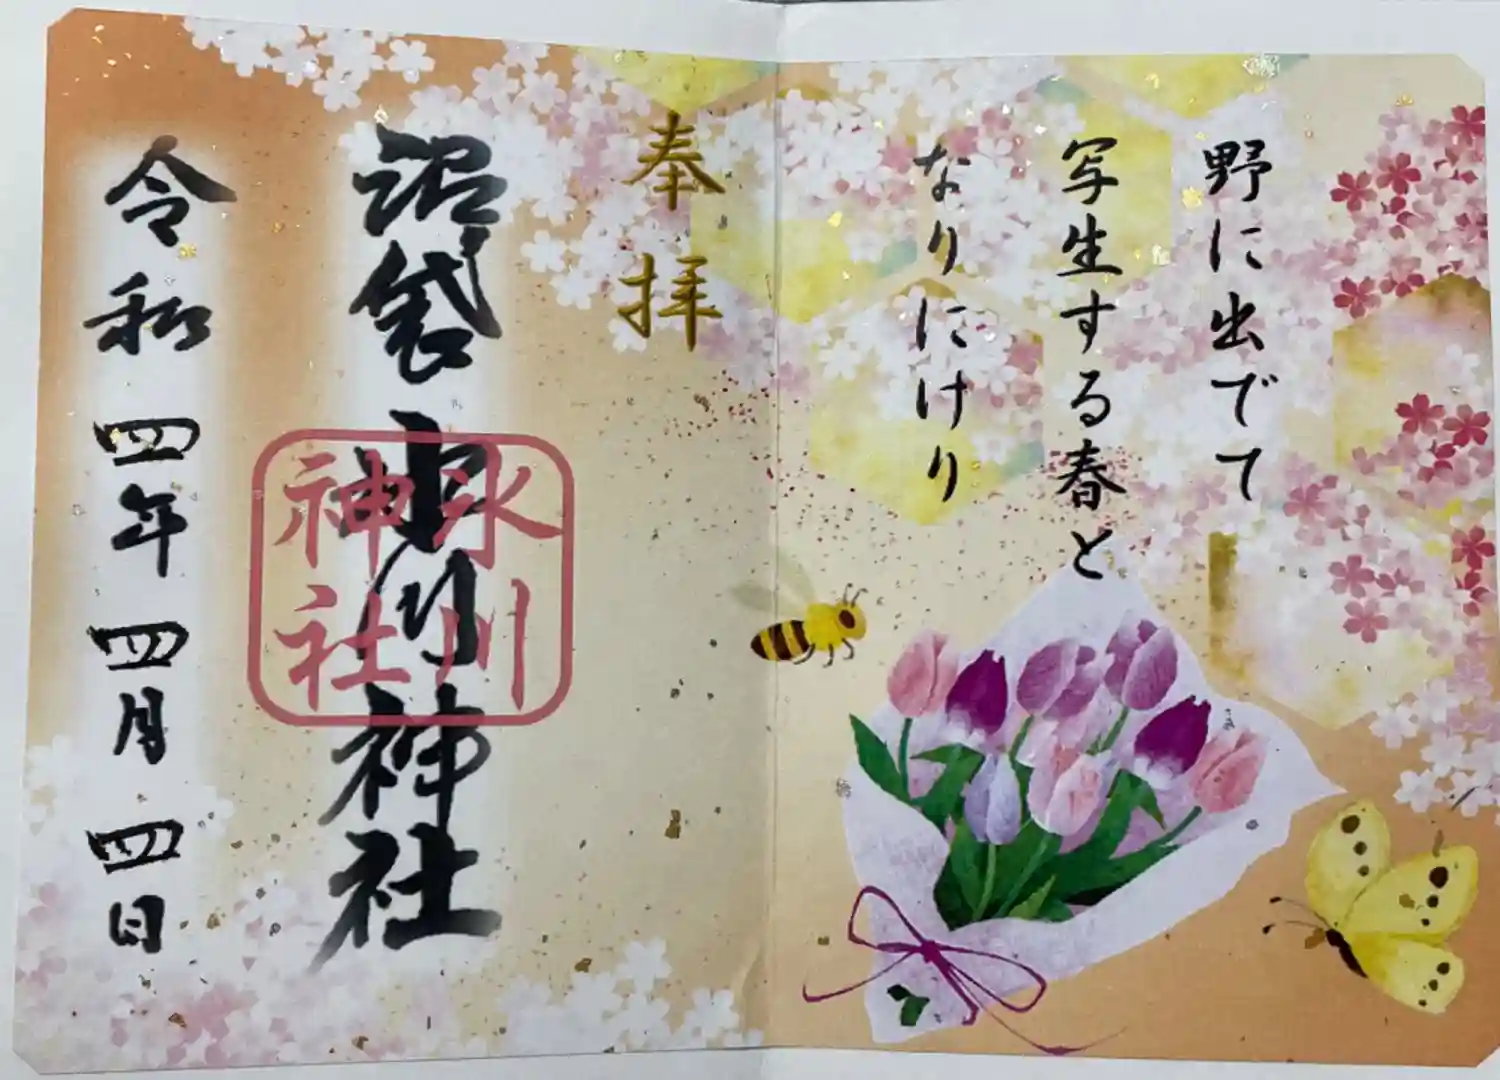 野に出でて
写生する春と
なりにけり
奉拝
沼袋氷川神社
氷川
神社
令和四年四月四日